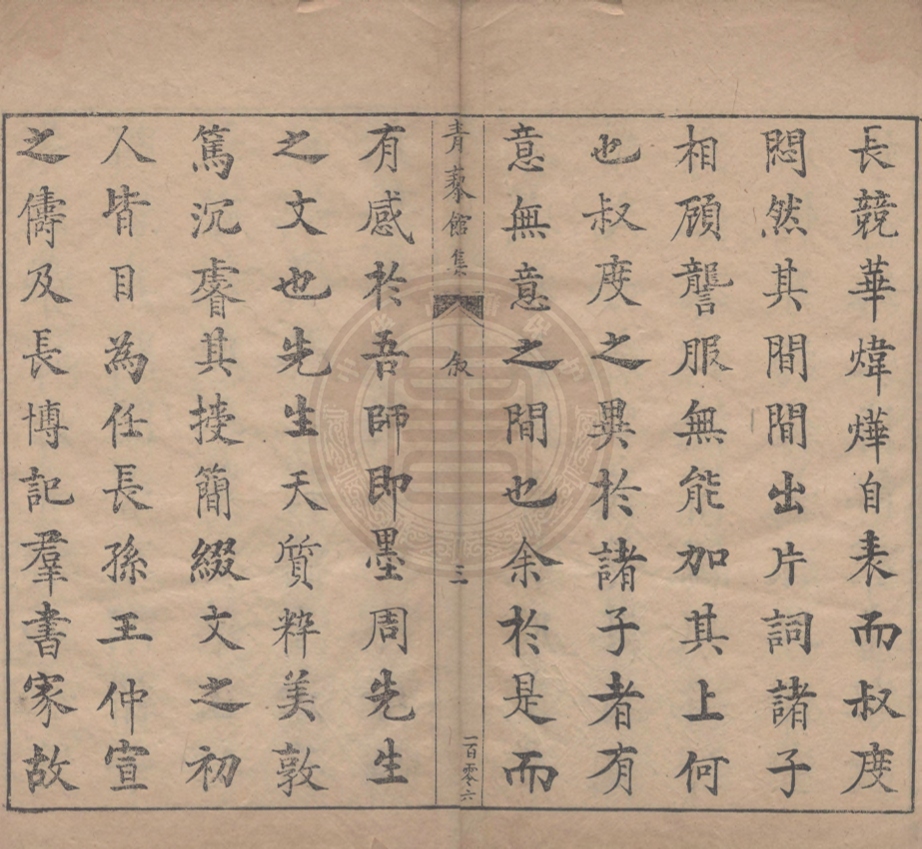 長競華煒燁自表而叔度
悶然其間間出片詞諸子
相顧讋服無能加其上何
也叔度之異於諸子者有
意無意之間也余於是而
青藜館集 敘 三 一百零六
有感於吾師即墨周先生
之文也先生天質粹美敦
篤沉睿其授簡綴文之初
人皆目為任長孫王仲宣
之儔及長博記羣書家故